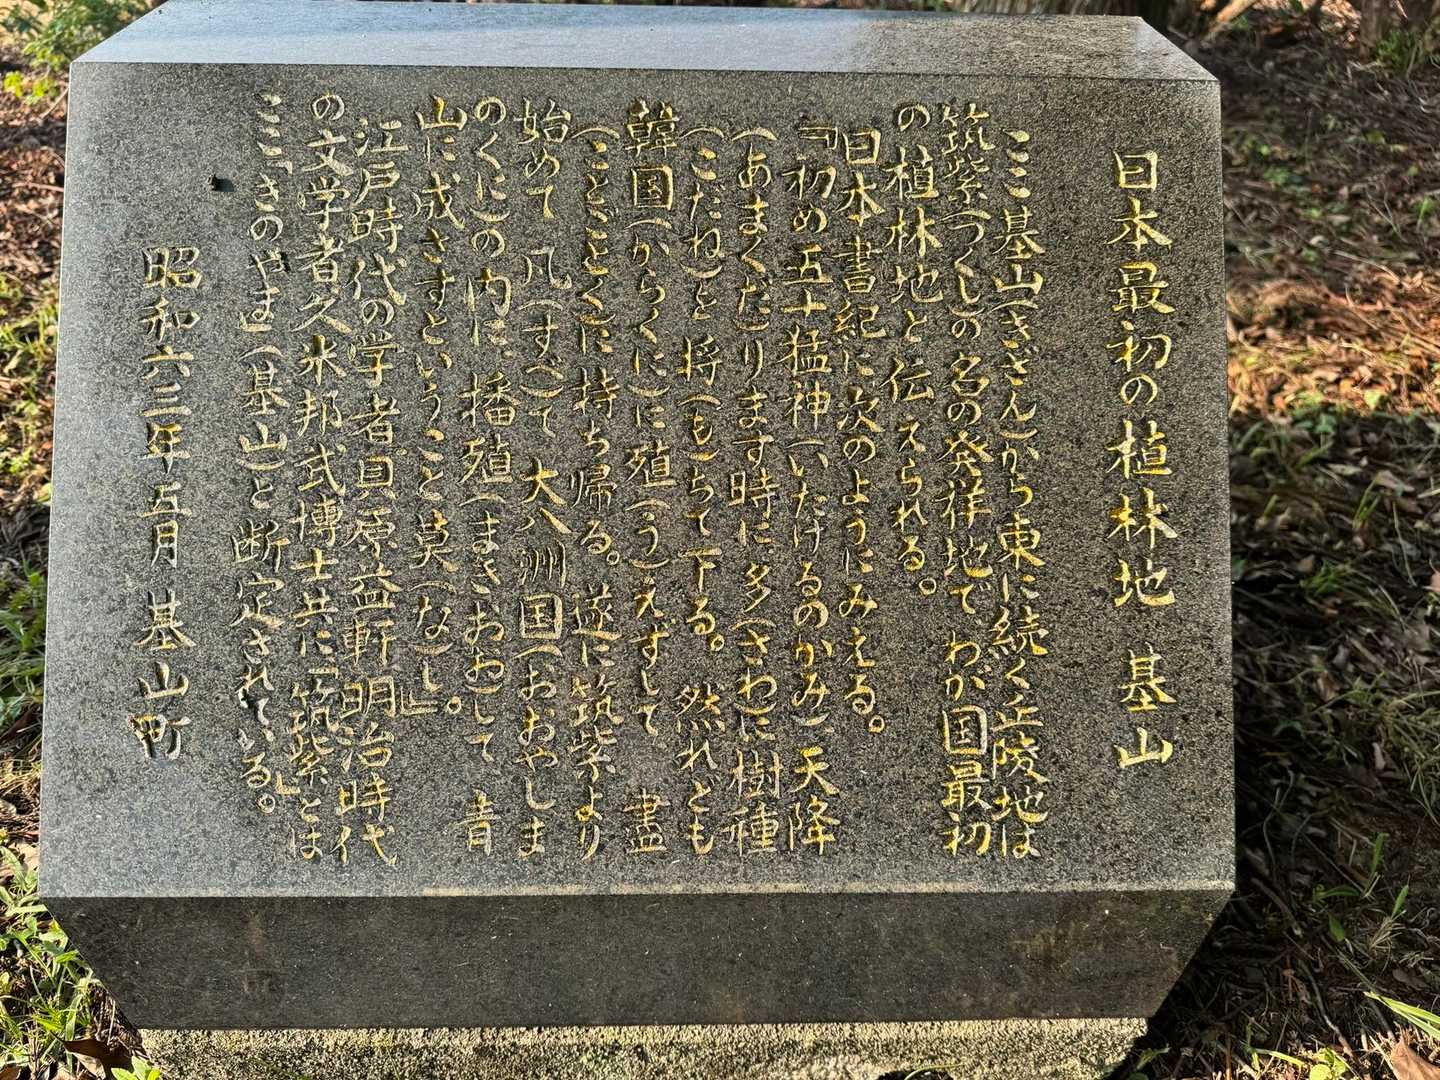 日本最初の植林地 基山
ここ基山(きざん)から東に続く丘陵地は
筑紫(つくし)の名の発祥地で わが国最初
の植林地と伝えられる。
日本書紀に次のようにみえる。
『初め五十猛神(いたけるのかみ) 天降
(あまくだ)ります時に、多(さわ)に樹種
(こだね)を将(も)ちて下る。然れども
韓国(からくに)に殖(う)えずして 盡
(ことごとく)に持ち帰る。遂に筑紫より
始めて 凡(すべ)て 大八洲国(おおやしま
のくに)の内に、播殖(まきおお)して 青
山に成さずということ莫(な)し』。
江戸時代の学者貝原益軒 明治時代
の文学者久米邦武博士共に「筑紫」とは
ここ「きのやま」(基山)と断定されている。
昭和六三年五月 基山町